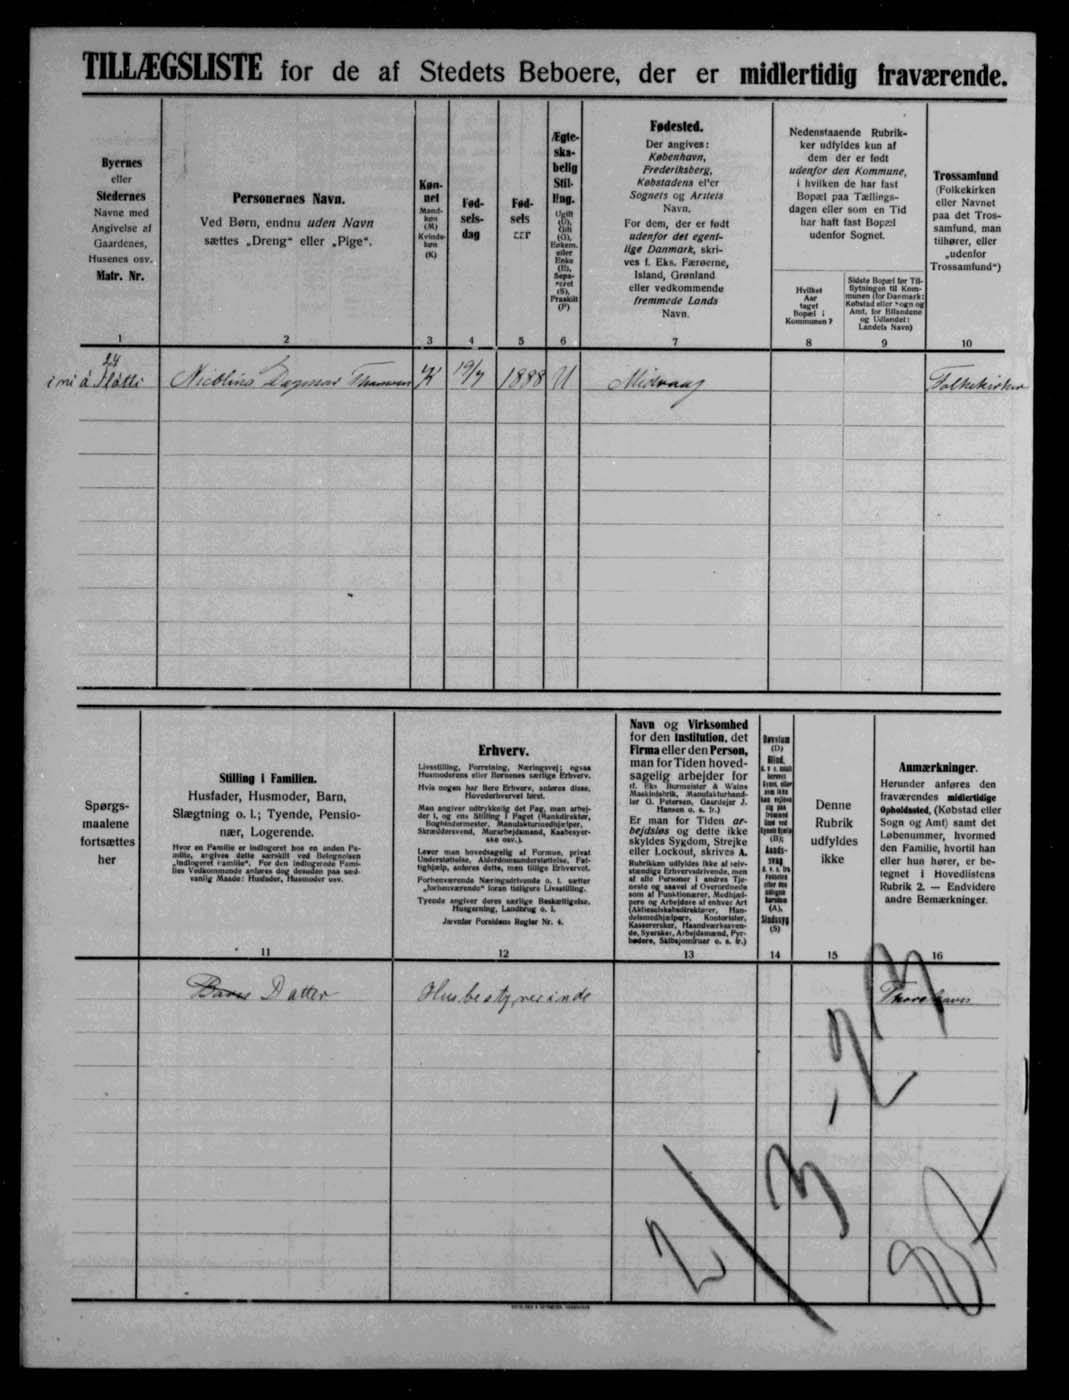 TILLÆGSLISTE for de af Stedets Beboere, der er midlertidig fraværende.
Byernes
eller
Stedernes
Navne med
Angivelse af
Gaardenes,
Husenes osv.
Matr. Nr.
1
Personernes Navn.
Ved Børn, endnu uden Navn
sættes „Dreng“ eller „Pige“.
2
Køn-
net
Mand-
køn
(M)
Kvinde-
køn
(K)
3
Fød-
sels-
dag
4
Fød-
sels
5
Ægte-
ska-
belig
Stil-
ling.
Ugift
(U),
Gift
(G),
Enkem.
eller
Enke
(E),
Sepa-
reret
(S),
Fraskilt
(F)
6
Fødested.
Der angives:
København,
Frederiksberg,
Købstadens eller
Sognets og Amtets
Navn.
For dem, der er født
udenfor det egent-
lige Danmark, skri-
ves f. Eks. Færøerne,
Island, Grønland
eller vedkommende
fremmede Lands
Navn.
7
Nedenstaaende Rubrik-
ker udfyldes kun af
dem der er født
udenfor den Kommune,
i hvilken de har fast
Bopæl paa Tællings-
dagen eller som en Tid
har haft fast Bopæl
udenfor Sognet.
Hvilket
Aar
taget
Bopæl i
Kommunen?
8
Sidste Bopæl før Til-
flytningen til Kom-
munen (for Danmark:
Købstad eller Sogn og
Amt, for Bilandene
og Udlandet:
Landets Navn)
9
Trossamfund
(Folkekirken
eller Navnet
paa det Tros-
samfund, man
tilhører, eller
„udenfor
Trossamfund“)
10
24
Nicolina Dagmar Thomsen K 19/7 1888 U Midvaag Folkekirken
Spørgs-
maalene
fortsættes
her
Stilling i Familien.
Husfader, Husmoder, Barn,
Slægtning o. l.; Tyende, Pensio-
nær, Logerende.
Hvor en Familie er indlogeret hos en anden Fa-
milie, angives dette særskilt ved Betegnelsen
„indlogeret Familie“. For den indlogerede Fami-
lies Vedkommende anføres dog desuden paa sæd-
vanlig Maade: Husfader, Husmoder osv.
11
Erhverv.
Livsstilling, Forretning, Næringsvej; ogsaa
Husmoderens eller Børnenes særlige Erhverv.
Hvis nogen har flere Erhverv, anføres disse,
Hovederhvervet først.
Man angiver udtrykkelig det Fag, man arbej-
der i, og ens Stilling i Faget (Bankdirektør,
Bogbindermester, Manufakturmedhjælper,
Skræddersvend, Murarbejdsmand, Kaabesyer-
ske osv.).
Lever man hovedsagelig af Formue, privat
Understøttelse, Alderdomsunderstøttelse, Fat-
tighjælp, anføres dette, men tillige Erhvervet.
Forhenværende Næringsdrivende o. l. sætter
„forhenværende“ foran tidligere Livsstilling.
Tyende angiver deres særlige Beskæftigelse,
Husgerning, Landbrug o. l.
Jævnfør Forsidens Regler Nr. 4.
12
Navn og Virksomhed
for den Institution, det
Firma eller den Person,
man for Tiden hoved-
sagelig arbejder for
(f. Eks Burmeister & Wains
Maskinfabrik, Manufakturhand-
ler G. Petersen, Gaardejer J.
Hansen o. s. fr.)
Er man for Tiden ar-
bejdsløs og dette ikke
skyldes Sygdom, Strejke
eller Lockout, skrives A.
Rubrikken udfyldes ikke af selv-
stændige Erhvervsdrivende, men
af alle Personer i andres Tje-
neste og saavel af Overordnede
som af Funktionærer, Medhjæl-
pere og Arbejdere af enhver Art
(Aktieselskabsdirektører, Han-
delsmedhjælpere, Kontorister,
Kasserersker, Haandværkssven-
de, Syersker, Arbejdsmænd, Fyr-
bødere, Skibsjomfruer o. s. fr.)
13
Døvstum
(D)
Blind,
(B);
Aands-
svag
(A),
Sindssyg
(S)
14
Denne
Rubrik
udfyldes
ikke
15
Anmærkninger.
Herunder anføres den
fraværendes midlertidige
Opholdssted, (Købstad eller
Sogn og Amt) samt det
Løbenummer, hvormed
den Familie, hvortil han
eller hun hører, er be-
tegnet i Hovedlistens
Rubrik 2. — Endvidere
andre Bemærkninger.
16
Barn Datter Husbestyrerinde Thorshavn
2/3-23